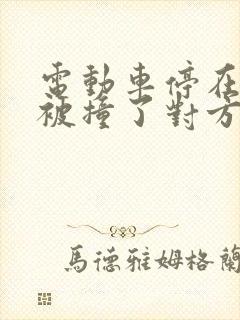 電動車停在
被撞了對方
馬德雅姆格蘭